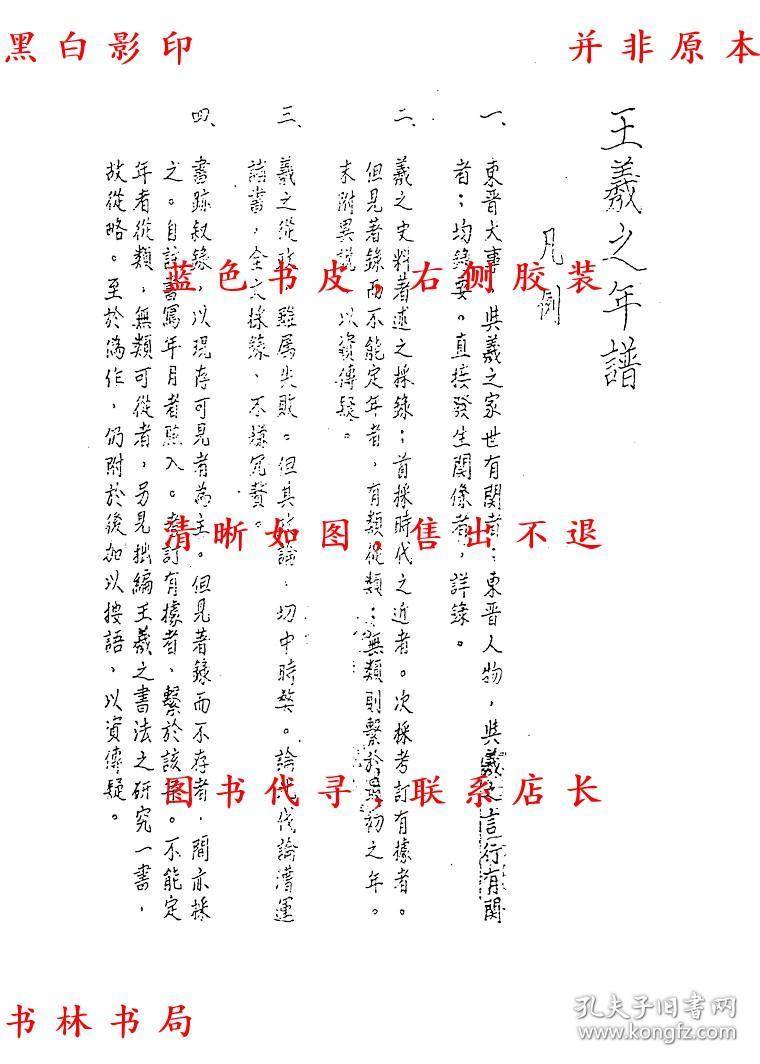 黑白影印
并非原本
王羲之年譜
凡例
一、東晋大事，與羲之家世有関者；東晋人物，與羲之言行有関
者；均錄要。直接發生関係者，詳錄。
二、羲之史料著述之採錄；首採時代之近者。次採考訂有據者。
但見著錄而不能定年者，有類從類；無類則繫於最初之年。
末附異說，以資傳疑。
三、羲之從政，雖属失敗。但其政論，切中時弊。論北伐論漕運
諸書，全文採錄、不嫌冗贅。
四、書跡叙錄，以現存可見者為主。但見著錄而不存者，間亦採
之。自該書寫年月者照入。考訂有據者、繫於該年。不能定
年者從類，無類可從者，另見拙編王羲之書法之研究一書，
故從略。至於偽作，仍附於後加以按語，以資傳疑。
蓝色书皮，右侧胶装
清晰如图，售出不退
图书代寻，联系店长
书林书局
孔夫子旧书网
www.kongfz.com